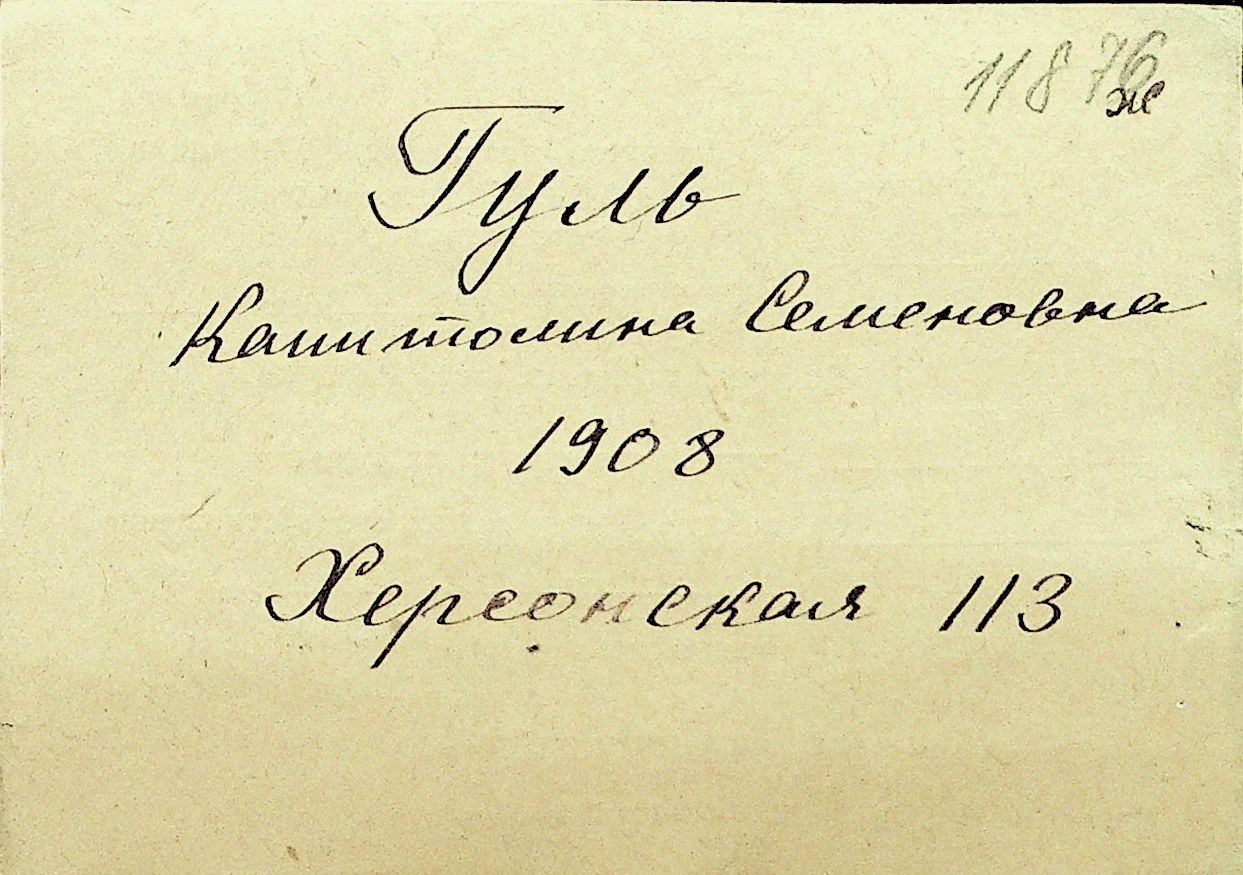 11876
ж
Гуль
Капитолина Семеновна
1908
Херсонская 113